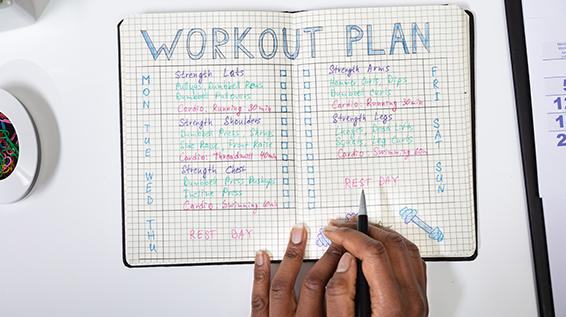 WORKOUT PLAN
MON
Strength Lats
Pullups, Dumbbell Rows
Dumbbell Pullovers
Cardio: Running 30min
TUE
Strength Shoulders
Dumbbell Press, Shrug,
Side Raise, Front Raise
Cardio: Threadmill 40min
WED
Strength Chest
Dumbbell Press Pushups
Incline Press
Cardio: Swimming
THU
REST DAY
FRI
Strength Arms
Hammer Curls, Dips
Dumbbell Curls
Cardio: Running 30min
SAT
Strength Legs
Lunges, Dead Lifts
Leg Curls
Cardio: Swimming
SUN
REST DAY